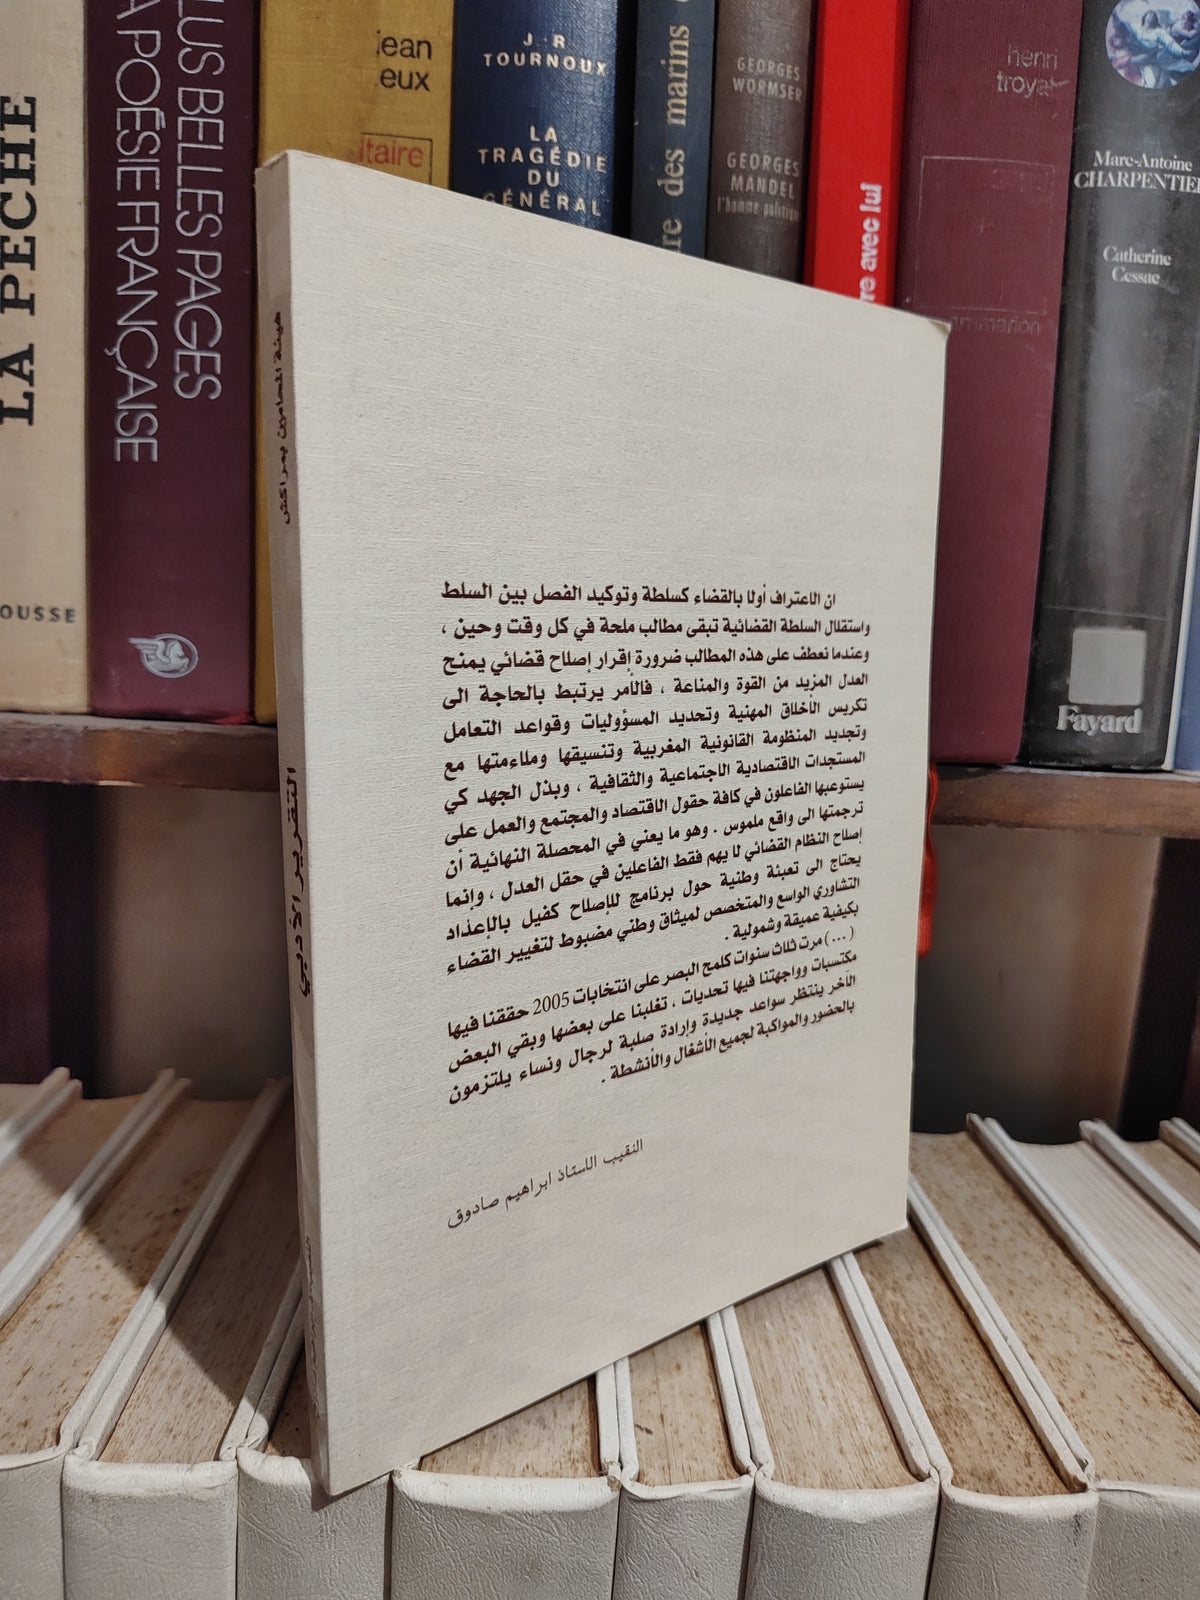 LA PECHE
OUSSE
LUS BELLES PAGES
A POÉSIE FRANÇAISE
jean
eux
ltaire
J. R
TOURNOUX
LA
TRAGÉDIE
DU
GÉNÉRAL
re des marins
GEORGES
WORMSER
GEORGES
MANDEL
l'homme politique
re avec lui
henri
troyat
mmarion
Marc-Antoine
CHARPENTIE
Catherine
Cessac
Fayard
هيئة المحامين بمراكش
التقرير الأدبي
ان الاعتراف أولا بالقضاء كسلطة وتوكيد الفصل بين السلط
واستقلال السلطة القضائية تبقى مطالب ملحة في كل وقت وحين ،
وعندما نعطف على هذه المطالب ضرورة إقرار إصلاح قضائي يمنح
العدل المزيد من القوة والمناعة ، فالأمر يرتبط بالحاجة الى
تكريس الأخلاق المهنية وتحديد المسؤوليات وقواعد التعامل
وتجديد المنظومة القانونية المغربية وتنسيقها وملاءمتها مع
المستجدات الاقتصادية الاجتماعية والثقافية ، وبذل الجهد كي
يستوعبها الفاعلون في كافة حقول الاقتصاد والمجتمع والعمل على
ترجمتها الى واقع ملموس . وهو ما يعني في المحصلة النهائية أن
إصلاح النظام القضائي لا يهم فقط الفاعلين في حقل العدل ، وإنما
يحتاج الى تعبئة وطنية حول برنامج للإصلاح كفيل بالإعداد
التشاوري الواسع والمتخصص لميثاق وطني مضبوط لتغيير القضاء
بكيفية عميقة وشمولية .
(...) مرت ثلاث سنوات كلمح البصر على انتخابات 2005 حققنا فيها
مكتسبات وواجهتنا فيها تحديات ، تغلبنا على بعضها وبقي البعض
الآخر ينتظر سواعد جديدة وإرادة صلبة لرجال ونساء يلتزمون
بالحضور والمواكبة لجميع الأشغال والأنشطة .
النقيب الاستاذ ابراهيم صادوق